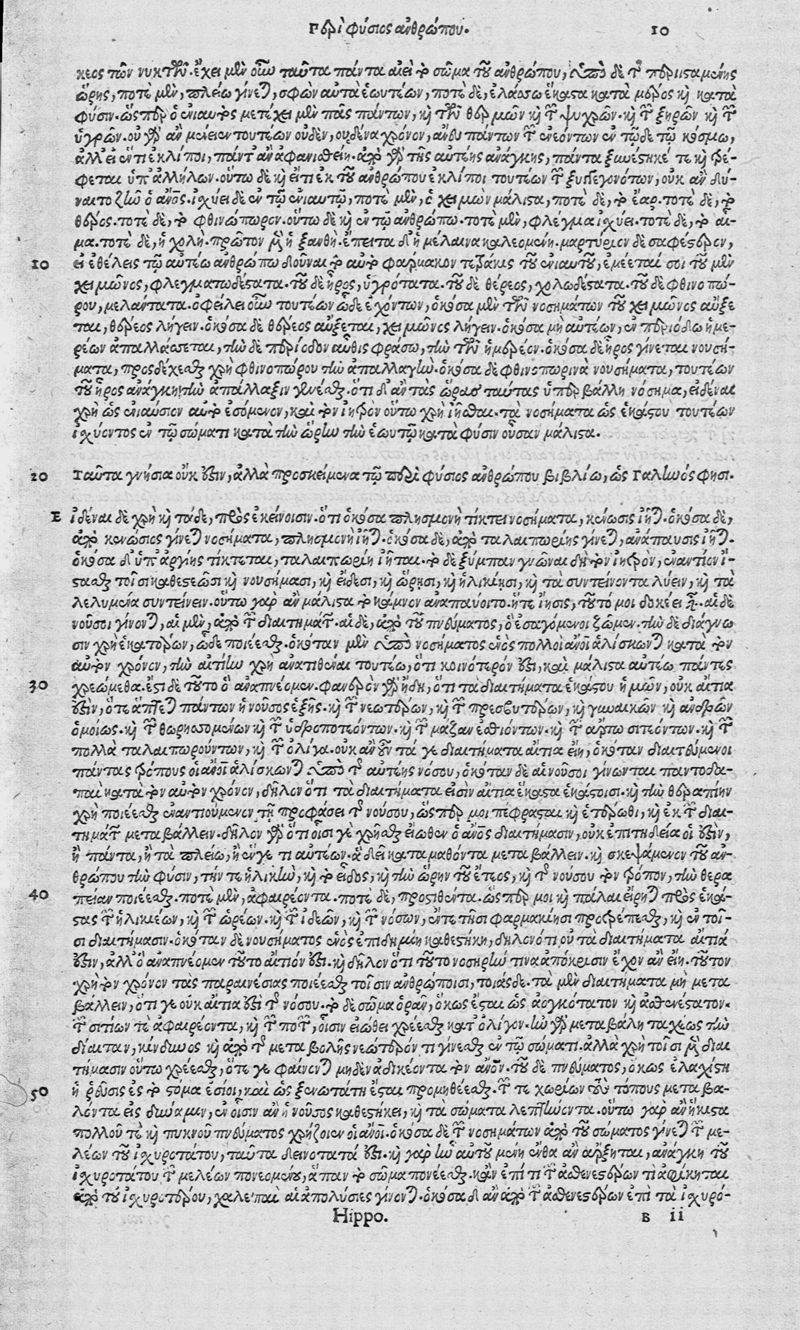 Περὶ φύσιος ἀνθρώπου. 10
κεος τῶν νυκτῶν. ἔχει μὲν οὖν ταῦτα πάντα αἰεὶ τὸ σῶμα τοῦ ἀνθρώπου, ὑπὸ δὲ τῆς περιισταμένης
ὥρης, ποτὲ μὲν, πλείω γίνεται, σφῶν αὐτὰ ἑωυτέων, ποτὲ δὲ, ἐλάσσω ἕκαστα κατὰ μέρος καὶ κατὰ
φύσιν. ὥσπερ ὁ ἐνιαυτὸς μετέχει μὲν πᾶς πάντων, καὶ τῶν θερμῶν καὶ τῶν ψυχρῶν. καὶ τῶν ξηρῶν καὶ τῶν
ὑγρῶν. οὐ γὰρ ἂν μείνειν τουτέων οὐδὲν, οὐδένα χρόνον, ἄνευ πάντων τῶν ἐνεόντων ἐν τῷδε τῷ κόσμῳ,
ἀλλ' εἰ ἕν τι ἐκλίποι, πάντ' ἂν ἀφανισθείη. ἀπὸ γὰρ τῆς αὐτέης ἀνάγκης, πάντα ξυνέστηκέ τε καὶ τρέ-
φεται ὑπ' ἀλλήλων. οὕτω δὲ καὶ εἴ τι ἐκ τοῦ ἀνθρώπου ἐκλίποι τουτέων τῶν ξυγγεγονότων, οὐκ ἂν δύ-
ναιτο ζῆν ὁ ἄνος. ἰσχύει δὲ ἐν τῷ ἐνιαυτῷ, ποτὲ μὲν, ὁ χειμὼν μάλιστα, ποτὲ δὲ, τὸ ἔαρ. ποτὲ δὲ, τὸ
θέρος. ποτὲ δὲ, τὸ φθινόπωρον. οὕτω δὲ καὶ ἐν τῷ ἀνθρώπῳ. ποτὲ μὲν, φλέγμα ἰσχύει. ποτὲ δὲ, τὸ αἷ-
μα. ποτὲ δὲ, ἡ χολὴ. πρῶτον μὲν ἡ ξανθὴ. ἔπειτα δ' ἡ μέλαινα καλεομένη. μαρτύριον δὲ σαφέστερον,
10 εἰ ἐθέλεις τῷ αὐτέῳ ἀνθρώπῳ δοῦναι τὸ αὐτὸ φάρμακον τετράκις τοῦ ἐνιαυτοῦ, ἐμέεται σοι τοῦ μὲν
χειμῶνος, φλεγματωδέστατα. τοῦ δὲ ἦρος, ὑγρότατα. τοῦ δὲ θέρεος, χολωδέστατα. τοῦ δὲ φθινοπώ-
ρου, μελάντατα. ὀφείλει οὖν τουτέων ὧδε ἐχόντων, ὁκόσα μὲν τῶν νοσημάτων τοῦ χειμῶνος αὔξε
ται, θέρεος λήγειν. ὁκόσα δὲ θέρεος αὔξεται, χειμῶνος λήγειν. ὁκόσα μὴ αὐτέων, ἐν περιόδῳ ἡμε-
ρέων ἀπαλλάσσεται, τὴν δὲ περίοδον αὖθις φράσω, τὴν τῶν ἡμερέων. ὁκόσα δὲ ἦρος γίνεται νουσή-
ματα, προσδέχεσθαι χρὴ φθινοπώρου τὴν ἀπαλλαγὴν. ὁκόσα δὲ φθινοπωρινὰ νουσήματα, τουτέων
τοῦ ἦρος ἀνάγκη τὴν ἀπάλλαξιν γενέσθαι. ὅτι δ' ἂν τὰς ὥρας ταύτας ὑπερβάλλῃ νόσημα, εἰδέναι
χρὴ ὡς ἐνιαύσιον αὐτὸ ἐσόμενον, καὶ τὸν ἰητρὸν οὕτω χρὴ ἰῆσθαι. τὰ νοσήματα ὡς ἑκάστου τουτέων
ἰσχύοντος ἐν τῷ σώματι κατὰ τὴν ὥρην τὴν ἑωυτῷ κατὰ φύσιν οὖσαν μάλιστα.
20 Ταῦτα γνήσια οὐκ ἔστιν, ἀλλὰ προσκείμενα τῷ περὶ φύσιος ἀνθρώπου βιβλίῳ, ὡς Γαληνός φησι.
Εἰδέναι δὲ χρὴ καὶ τάδε, πρὸς ἐκείνοισιν. ὅτι ὁκόσα πλησμονὴ τίκτει νοσήματα, κένωσις ἰῆται. ὁκόσα δὲ,
ἀπὸ κενώσιος γίνεται νοσήματα, πλησμονὴ ἰῆται. ὁκόσα δὲ, ἀπὸ ταλαιπωρίης γίνεται, ἀνάπαυσις ἰῆται.
ὁκόσα δ' ὑπ' ἀργίης τίκτεται, ταλαιπωρίη ἰῆται. τὸ δὲ ξύμπαν γνῶναι δεῖ τὸν ἰητρὸν, ἐναντίον ἵ-
στασθαι τοῖσι καθεστεῶσι καὶ νουσήμασι, καὶ εἴδεσι, καὶ ὥρῃσι, καὶ ἡλικίῃσι, καὶ τὰ συντείνοντα λύειν, καὶ τὰ
λελυμένα συντείνειν. οὕτω γὰρ ἂν μάλιστα τὸ κάμνον ἀναπαύοιτο. ἥ τε ἴησις, τοῦτό μοι δοκέει εἶναι. αἱ δὲ
νοῦσοι γίνονται, αἱ μὲν, ἀπὸ τῶν διαιτημάτων. αἱ δὲ, ἀπὸ τοῦ πνεύματος, ὃ ἐσαγόμενοι ζῶμεν. τὴν δὲ διάγνω
σιν χρὴ ἑκατέρων, ὧδε ποιέεσθαι. ὁκόταν μὲν ὑπὸ νοσήματος ἑνὸς πολλοὶ ἄνοι ἁλίσκωνται κατὰ τὸν
αὐτὸν χρόνον, τὴν αἰτίην χρὴ ἀνατιθέναι τουτέῳ, ὅτι κοινότερόν ἐστι, καὶ μάλιστα αὐτέῳ πάντες
30 χρεώμεθα. ἔστι δὲ τοῦτο ὃ ἀναπνέομεν. φανερὸν γὰρ ἤδη, ὅτι τὰ διαιτήματα ἑκάστου ἡμῶν, οὐκ αἴτια
ἐστιν, ὅτε ἅπτεται πάντων ἡ νοῦσος ἑξῆς. καὶ τῶν νεωτέρων, καὶ τῶν πρεσβυτέρων, καὶ γυναικῶν καὶ ἀνδρῶν
ὁμοίως. καὶ τῶν θωρησσομένων καὶ τῶν ὑδροποτεόντων. καὶ τῶν μᾶζαν ἐσθιόντων. καὶ τῶν ἄρτῳ σιτεόντων. καὶ τῶν
πολλὰ ταλαιπωρούντων, καὶ τῶν ὀλίγα. οὐκ ἂν οὖν τά γε διαιτήματα αἴτια εἴη, ὁκόταν διαιτεύμενοι
πάντας τρόπους οἱ ἄνοι ἁλίσκωνται ὑπὸ τῆς αὐτέης νόσου, ὁκόταν δὲ αἱ νοῦσοι γίνωνται παντοδα-
παὶ κατὰ τὸν αὐτὸν χρόνον, δῆλον ὅτι τὰ διαιτήματά εἰσιν αἴτια ἕκαστα ἑκάστοισι. καὶ τὴν θεραπηίην
χρὴ ποιέεσθαι ἐναντιούμενον τῇ προφάσει τῆς νούσου, ὥσπερ μοι πέφρασται καὶ ἑτέρωθι, καὶ ἐκ τῶν διαι-
τημάτων μεταβάλλειν. δῆλον γὰρ ὅτι οἷσί γε χρῆσθαι εἴωθεν ὁ ἄνος διαιτήμασιν, οὐκ ἐπιτήδεια οἱ ἐστὶν,
ἢ πάντα, ἢ τὰ πλείω, ἢ ἕν γέ τι αὐτέων. ἃ δεῖ καταμαθόντα μεταβάλλειν. καὶ σκεψάμενον τοῦ ἀν-
θρώπου τὴν φύσιν, τήν τε ἡλικίην, καὶ τὸ εἶδος, καὶ τὴν ὥρην τοῦ ἔτεος, καὶ τῆς νούσου τὸν τρόπον, τὴν θερα
40 πείαν ποιέεσθαι. ποτὲ μὲν, ἀφαιρέοντα. ποτὲ δὲ, προστιθέντα. ὥσπερ μοι καὶ πάλαι εἴρηται πρὸς ἑκά-
στας τῶν ἡλικιέων, καὶ τῶν ὡρέων. καὶ τῶν ἰδεῶν, καὶ τῶν νόσων, ἔν τε τῇσι φαρμακίῃσι προστρέπεσθαι, καὶ ἐν τοῖ-
σι διαιτήμασιν. ὁκόταν δὲ νουσήματος ἑνὸς ἐπιδημίη καθεστήκῃ, δῆλον ὅτι οὐ τὰ διαιτήματα αἴτιά
ἐστιν, ἀλλ' ὃ ἀναπνέομεν τοῦτο αἴτιόν ἐστι. καὶ δῆλον ὅτι τοῦτο νοσηρήν τινα ἀπόκρισιν ἔχον ἂν εἴη. τοῦτον
χρὴ τὸν χρόνον τὰς παραινέσιας ποιέεσθαι τοῖσιν ἀνθρώποισι, τοιάσδε. τὰ μὲν διαιτήματα μὴ μετα
βάλλειν, ὅτι γε οὐκ αἴτιά ἐστι τῆς νόσου. τὸ δὲ σῶμα ὁρᾶν, ὅκως ἔσται ὡς ἀογκότατον καὶ ἀσθενέστατον.
τῶν σιτίων τε ἀφαιρέοντα, καὶ τῶν ποτῶν, οἷσιν εἰώθει χρέεσθαι κατ' ὀλίγον. ἢν γὰρ μεταβάλῃ ταχέως τὴν
δίαιταν, κίνδυνος καὶ ἀπὸ τῆς μεταβολῆς νεώτερόν τι γίνεσθαι ἐν τῷ σώματι. ἀλλὰ χρὴ τοῖσι μὲν διαι
τήμασιν οὕτω χρέεσθαι, ὅτε γε φαίνεται μηδὲν ἀδικέοντα τὸν ἄνον. τοῦ δὲ πνεύματος, ὅκως ἐλαχίστη
50 ἡ ῥεῦσις ἐς τὸ στόμα ἐσίοι, καὶ ὡς ξενωτάτη ἔσται προμηθέεσθαι. τῶν τε χωρίων τοὺς τόπους μεταβα-
λόντα εἰς δύναμιν, ἐν οἷσιν ἂν ἡ νοῦσος καθεστήκει, καὶ τὰ σώματα λεπτύνοντα. οὕτω γὰρ ἂν ἥκιστα
πολλοῦ τε καὶ πυκνοῦ πνεύματος χρῄζοιεν οἱ ἄνοι. ὁκόσα δὲ τῶν νοσημάτων ἀπὸ τοῦ σώματος γίνεται τῶν με-
λέων τοῦ ἰσχυροτάτου, ταῦτα δεινότατά ἐστι. καὶ γὰρ ἢν αὐτοῦ μένῃ ἔνθα ἂν ἄρξηται, ἀνάγκη τοῦ
ἰσχυροτάτου τῶν μελέων πονεομένου, ἅπαν τὸ σῶμα πονέεσθαι. κἢν ἐπί τι τῶν ἀσθενεστέρων τι ἀφίκηται
ἀπὸ τοῦ ἰσχυροτέρου, χαλεπαὶ αἱ ἀπολύσιες γίνονται. ὁκόσα δ' ἂν ἀπὸ τῶν ἀσθενεστέρων ἐπὶ τὰ ἰσχυρό-
Hippo. B ii